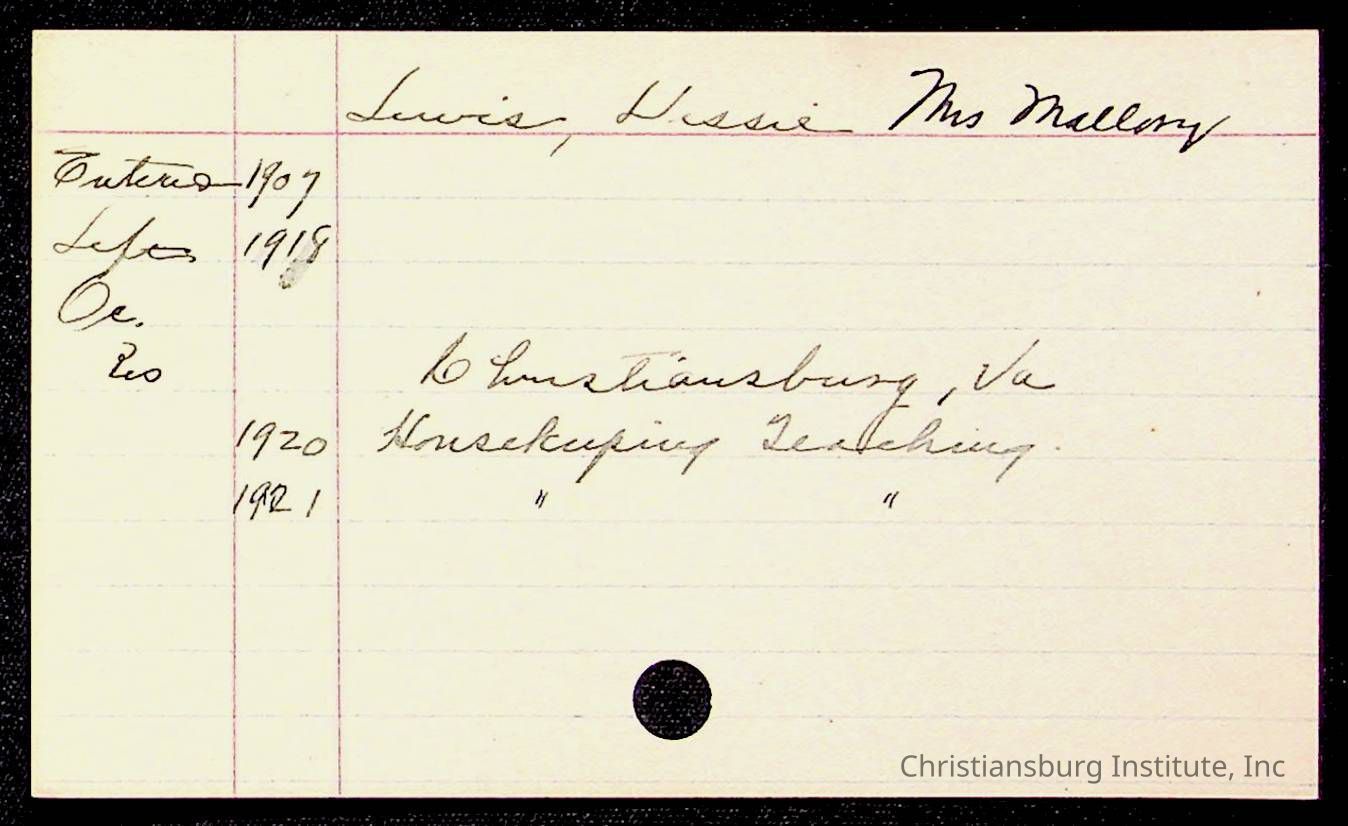 Lewis, Hessie Mrs Mallory
Entered 1907
Left 1918
Oc.
Res Christiansburg, Va
1920 Housekeeping Teaching
1921 " "
Christiansburg Institute, Inc